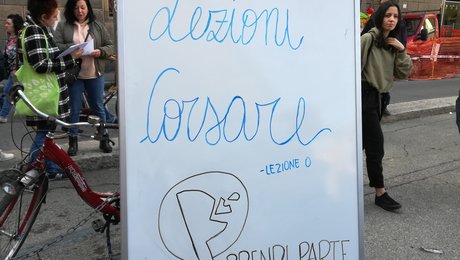 Lezioni
Corsare
-LEZIONE 0
PRENDI PARTE